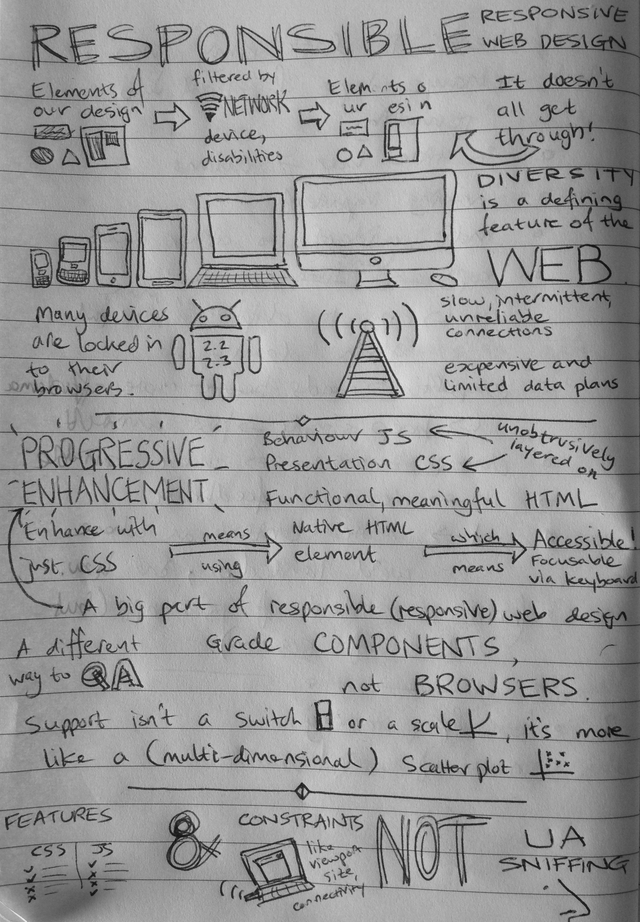 RESPONSIBLE RESPONSIVE
WEB DESIGN
Elements of
our design
filtered by
NETWORK
device,
disabilities
Elem nts o
ur esi n
It doesn't
all get
through!
DIVERSITY
is a defining
feature of the
WEB.
Many devices
are locked in
to their
browsers.
2.2
2.3
slow, intermittent,
unreliable
connections
expensive and
limited data plans
PROGRESSIVE
ENHANCEMENT
Behaviour JS
Presentation CSS
Functional, meaningful HTML
unobtrusively
layered on
Enhance with
just CSS
means
using
Native HTML
element
which
means
Accessible!
Focusable
via keyboard
A big part of responsible (responsive) web design
A different
way to QA
Grade COMPONENTS,
not BROWSERS.
Support isn't a switch or a scale, it's more
like a (multi-dimensional) scatter plot
FEATURES
CSS JS
&
CONSTRAINTS
like
viewport
size,
connectivity
NOT
UA
SNIFFING